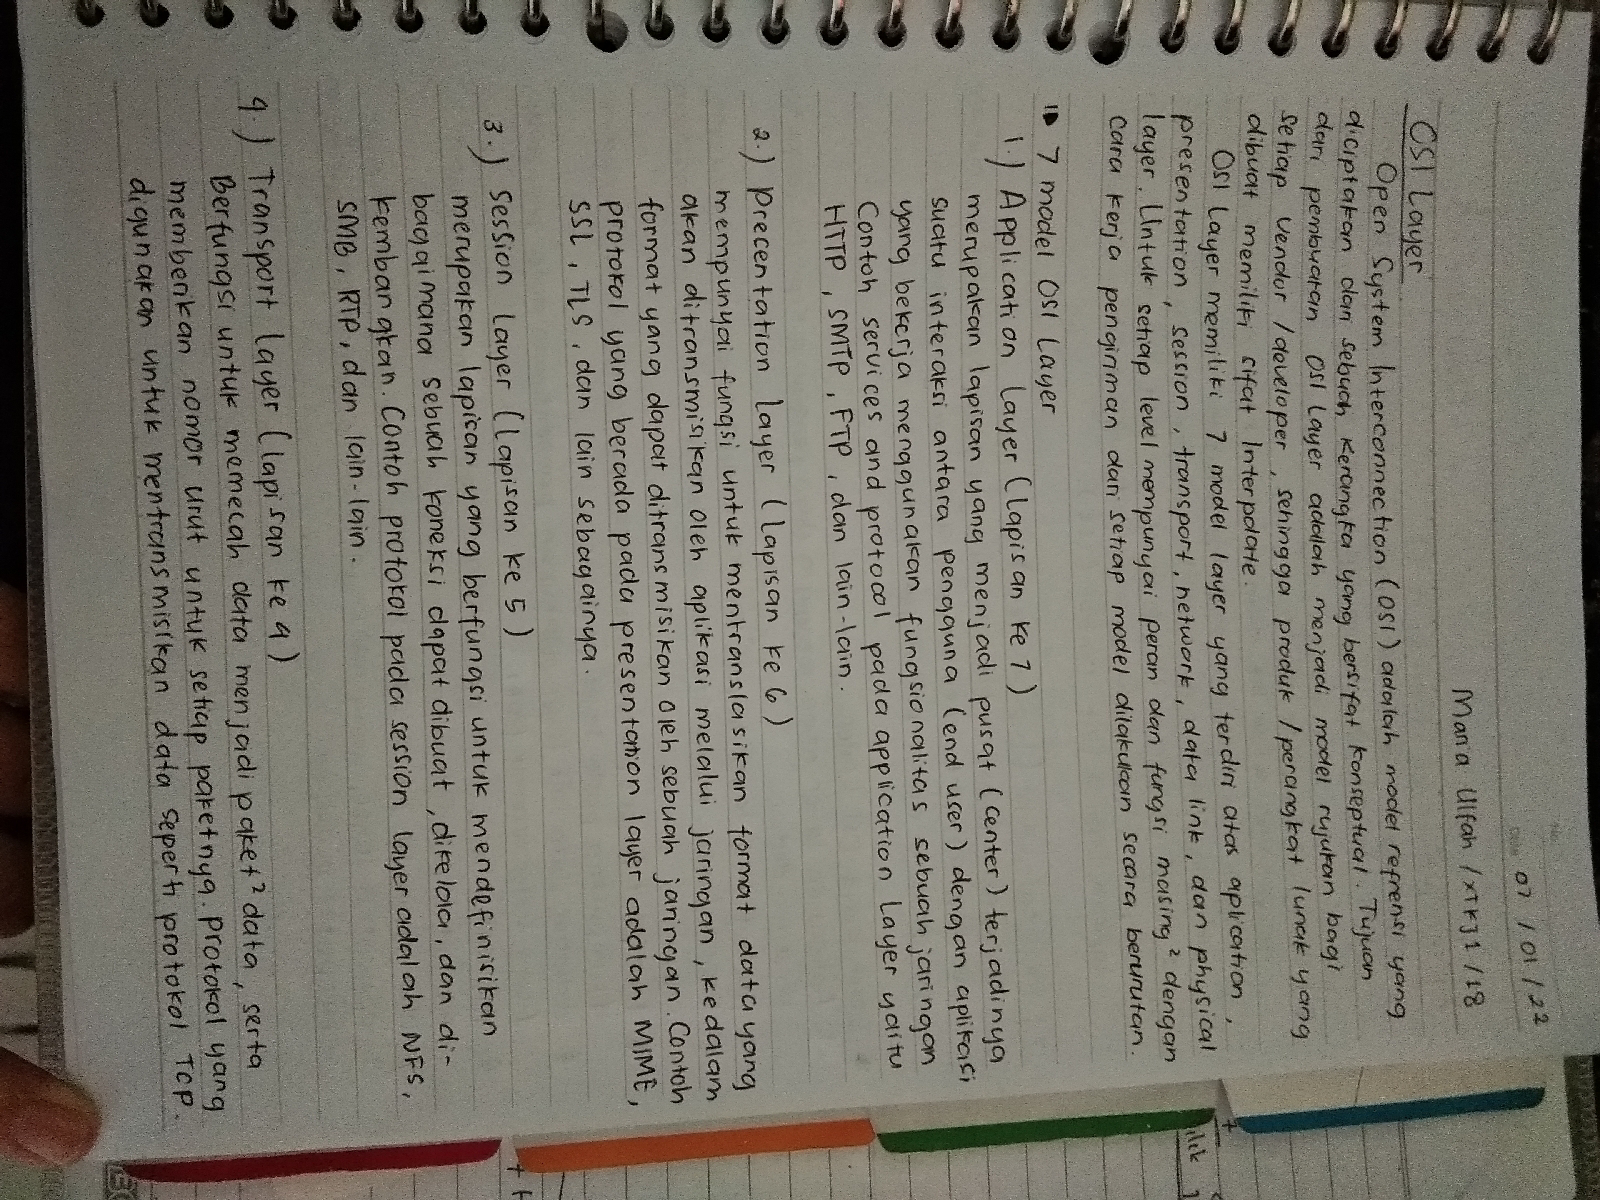 No.
Date
07 / 01 / 22
Maria Ulfah / XTKJ1 / 18
OSI Layer
Open System Interconnection (OSI) adalah model refrensi yang
diciptakan dari sebuah kerangka yang bersifat konseptual. Tujuan
dari pembuatan OSI layer adalah menjadi model rujukan bagi
setiap vendor / developer, sehingga produk / perangkat lunak yang
dibuat memiliki sifat Interpolate.
OSI layer memiliki 7 model layer yang terdiri atas aplication,
presentation, session, transport, network, data link, dan physical
layer. Untuk setiap level mempunyai peran dan fungsi masing² dengan
cara kerja pengiriman dari setiap model dilakukan secara berurutan.
7 model OSI Layer
1.) Application layer (lapisan ke 7)
merupakan lapisan yang menjadi pusat (center) terjadinya
suatu interaksi antara pengguna (end user) dengan aplikasi
yang bekerja menggunakan fungsionalitas sebuah jaringan
Contoh services and protocol pada application layer yaitu
HTTP, SMTP, FTP, dan lain-lain.
2.) Precentation layer (lapisan ke 6)
mempunyai fungsi untuk mentranslasikan format data yang
akan ditransmisikan oleh aplikasi melalui jaringan, kedalam
format yang dapat ditransmisikan oleh sebuah jaringan. Contoh
protokol yang berada pada presentation layer adalah MIME,
SSL, TLS, dan lain sebagainya.
3.) Session layer (lapisan ke 5)
merupakan lapisan yang berfungsi untuk mendefinisikan
bagaimana sebuah koneksi dapat dibuat, dikelola, dan di-
kembangkan. Contoh protokol pada session layer adalah NFS,
SMB, RTP, dan lain-lain.
4.) Transport layer (lapisan ke 4)
Berfungsi untuk memecah data menjadi paket² data, serta
memberikan nomor urut untuk setiap paketnya. Protokol yang
digunakan untuk mentransmisikan data seperti protokol TCP.